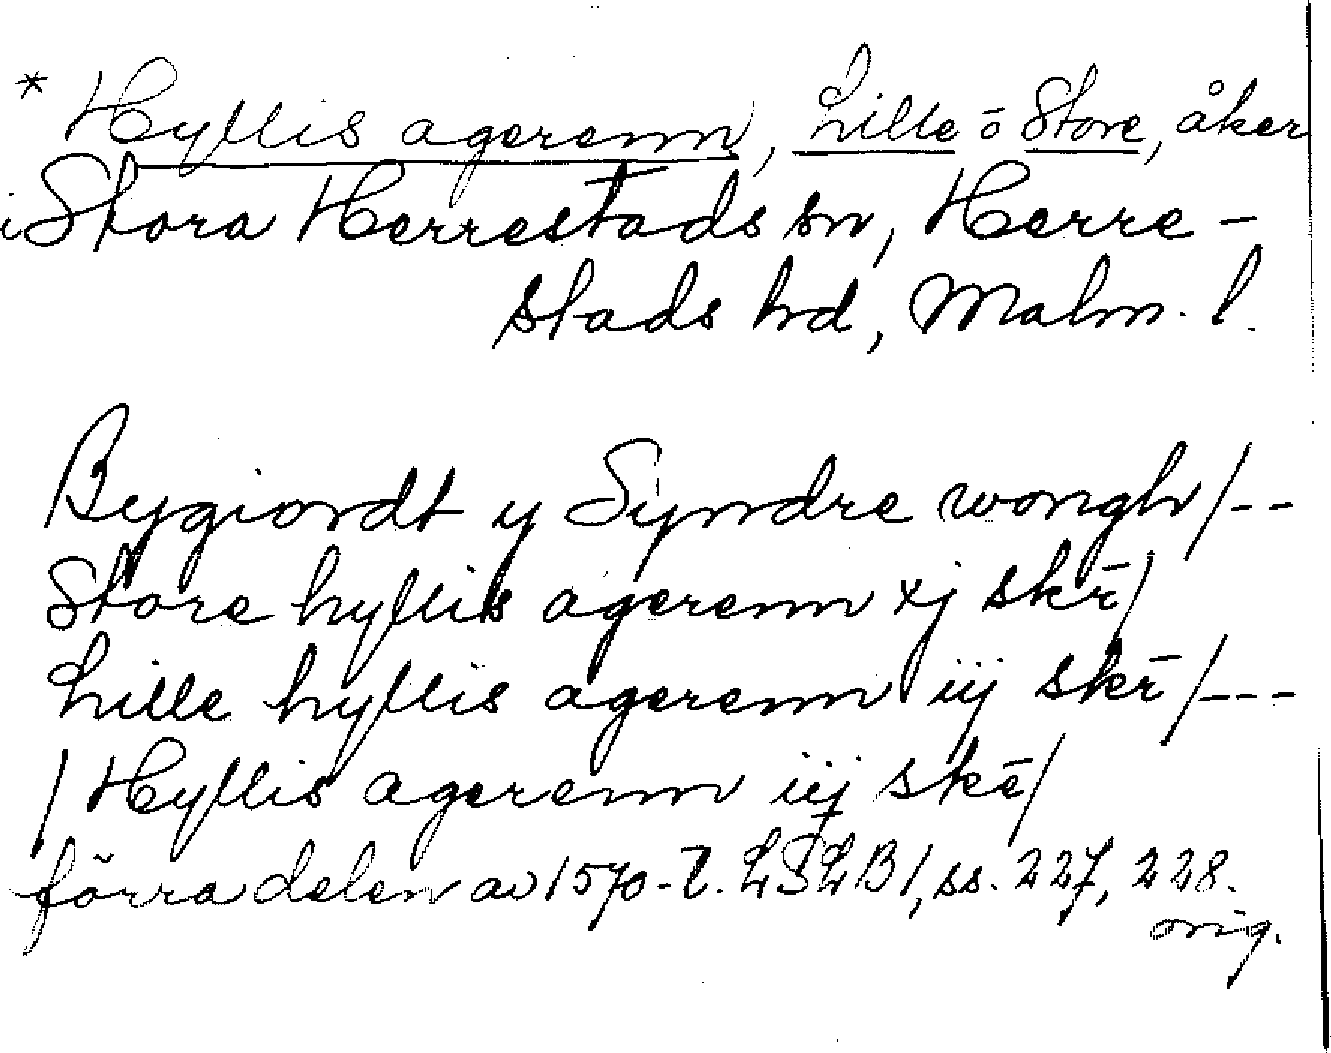 * Hyllis agerenn, Lille o Store, åker
i Stora Herrestads sn, Herre-
stads hd, Malm. l.
Bygiordt y Syndre wongh/--
Store hyllis agerenn xj skē/
Lille hyllis agerenn iij skē/---
/Hyllis agerenn iiij skē/
förra delen av 1570-t. LSLB1, ss. 227, 228.
orig.